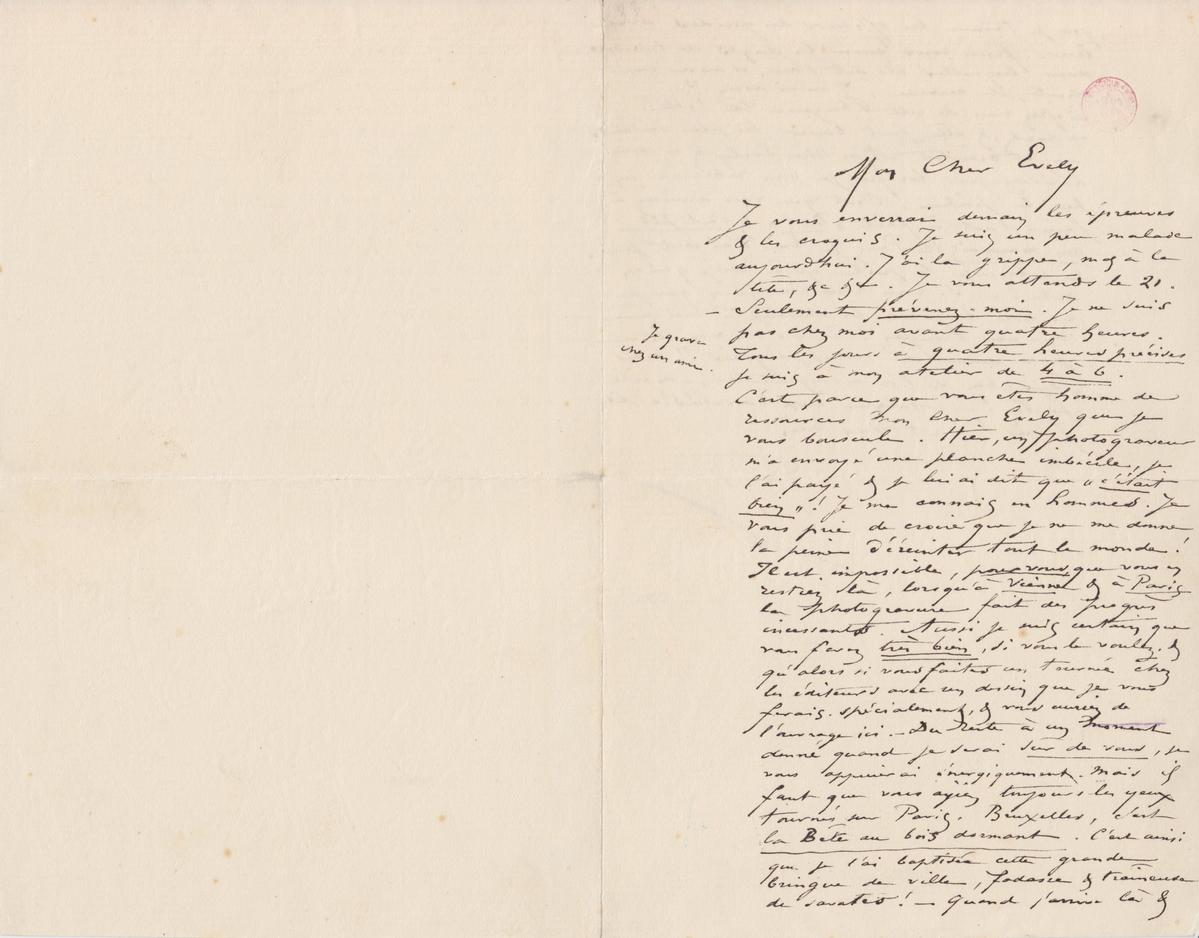 Mon Cher Evely
Je vous enverrai demain les épreuves
& les croquis. Je suis un peu malade
aujourd'hui. J'ai la grippe, mal à la
tête, &c &c. Je vous attends le 21.
— Seulement prévenez-moi. Je ne suis
pas chez moi avant quatre heures.
Je grave
chez un ami.
Tous les jours à quatre heures précises
je suis à mon atelier de 4 à 6.
C'est parce que vous êtes homme de
ressources mon Cher Evely que je
vous bouscule. Hier, un photograveur
m'a envoyé une planche imbécile, je
l'ai payé & je lui ai dit que „c'était
bien„! Je me connais en hommes. Je
vous prie de croire que je ne me donne
la peine d'éreinter tout le monde!
Il est impossible, pour vous que vous en
restiez là, lorsqu'à Vienne & à Paris
la photogravure fait des progrès
incessants. Aussi je suis certain que
vous ferez très bien, si vous le voulez, &
qu'alors si vous faites un tournée chez
les éditeurs avec un dessin que je vous
ferais spécialement, & vous auriez de
l'ouvrage ici. — Du reste à un moment
donné quand je serai sur de vous, je
vous appuierai énergiquement. Mais il
faut que vous ayiez toujours les yeux
tournés sur Paris. Bruxelles, c'est
la Bête au bois dormant. C'est ainsi
que je l'ai baptisée cette grande
bringue de ville, fadasse & traineuse
de savates! — Quand j'arrive là &